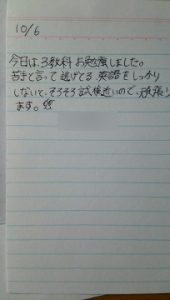 10/6
今日は、3教科お勉強しました。
苦手と言って逃げてる英語をしっかり
しないと、そろそろ試検近いので、頑張り
ます。